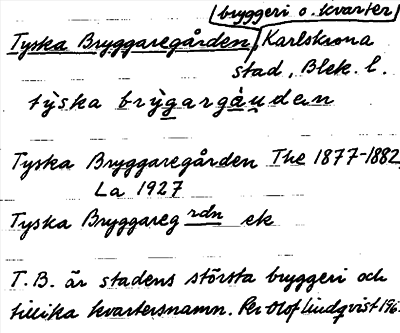 bryggeri o. kvarter
Tyska Bryggaregården, Karlskrona
stad, Blek. l.
tỳska brỳgargả̀ụdan
Tyska Bryggaregården The 1877-1882,
La 1927
Tyska Bryggareg rdn ek
T.B. är stadens största bryggeri och
tillika kvartersnamn. Per Olof Lindqvist 196